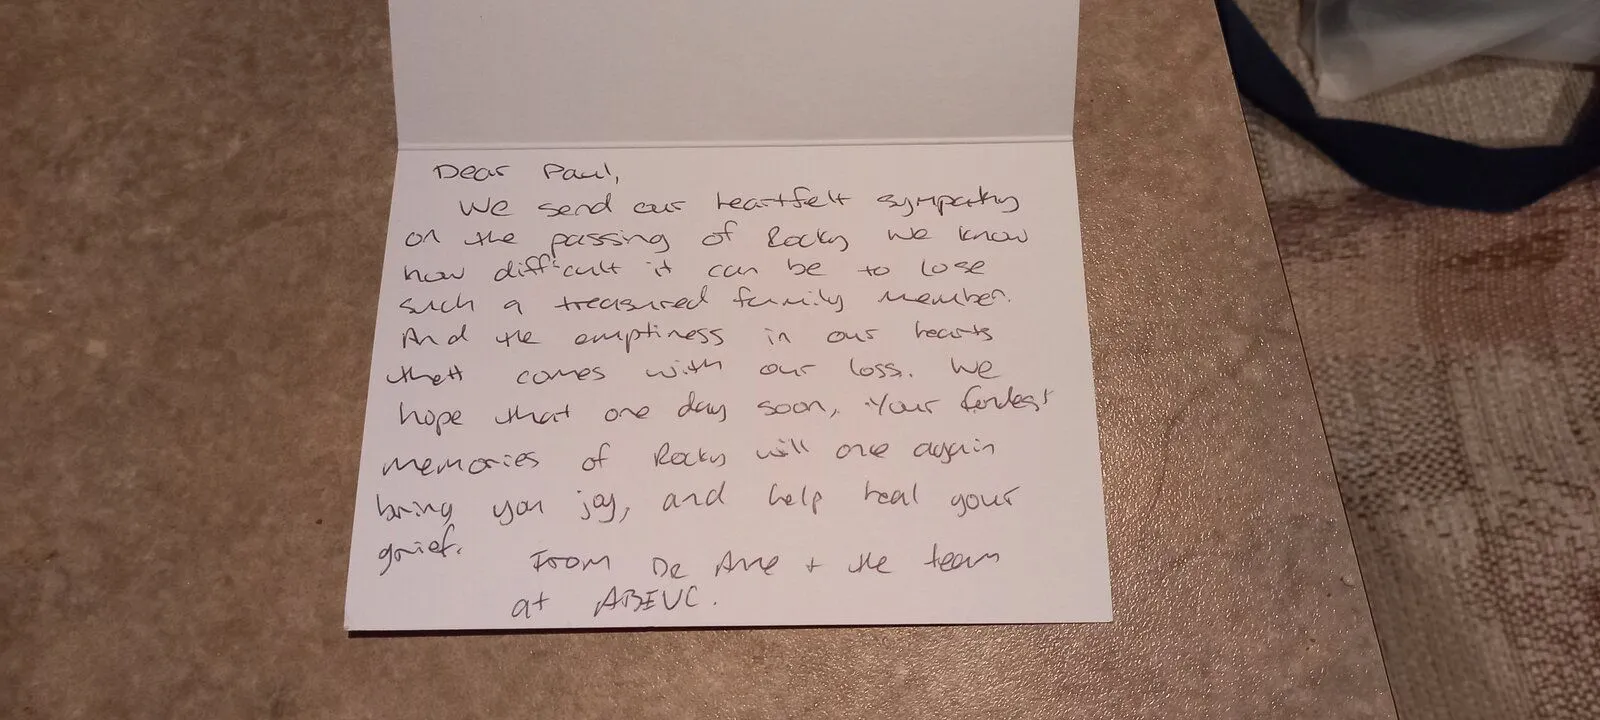 Dear Paul,
We send our heartfelt sympathy
on the passing of Rocky we know
how difficult it can be to lose
such a treasured family member.
And the emptiness in our hearts
that comes with our loss. We
hope that one day soon, Your fondest
memories of Rocky will once again
bring you joy, and help heal your
grief.
From Dr Anne + the team
at ABEVC.